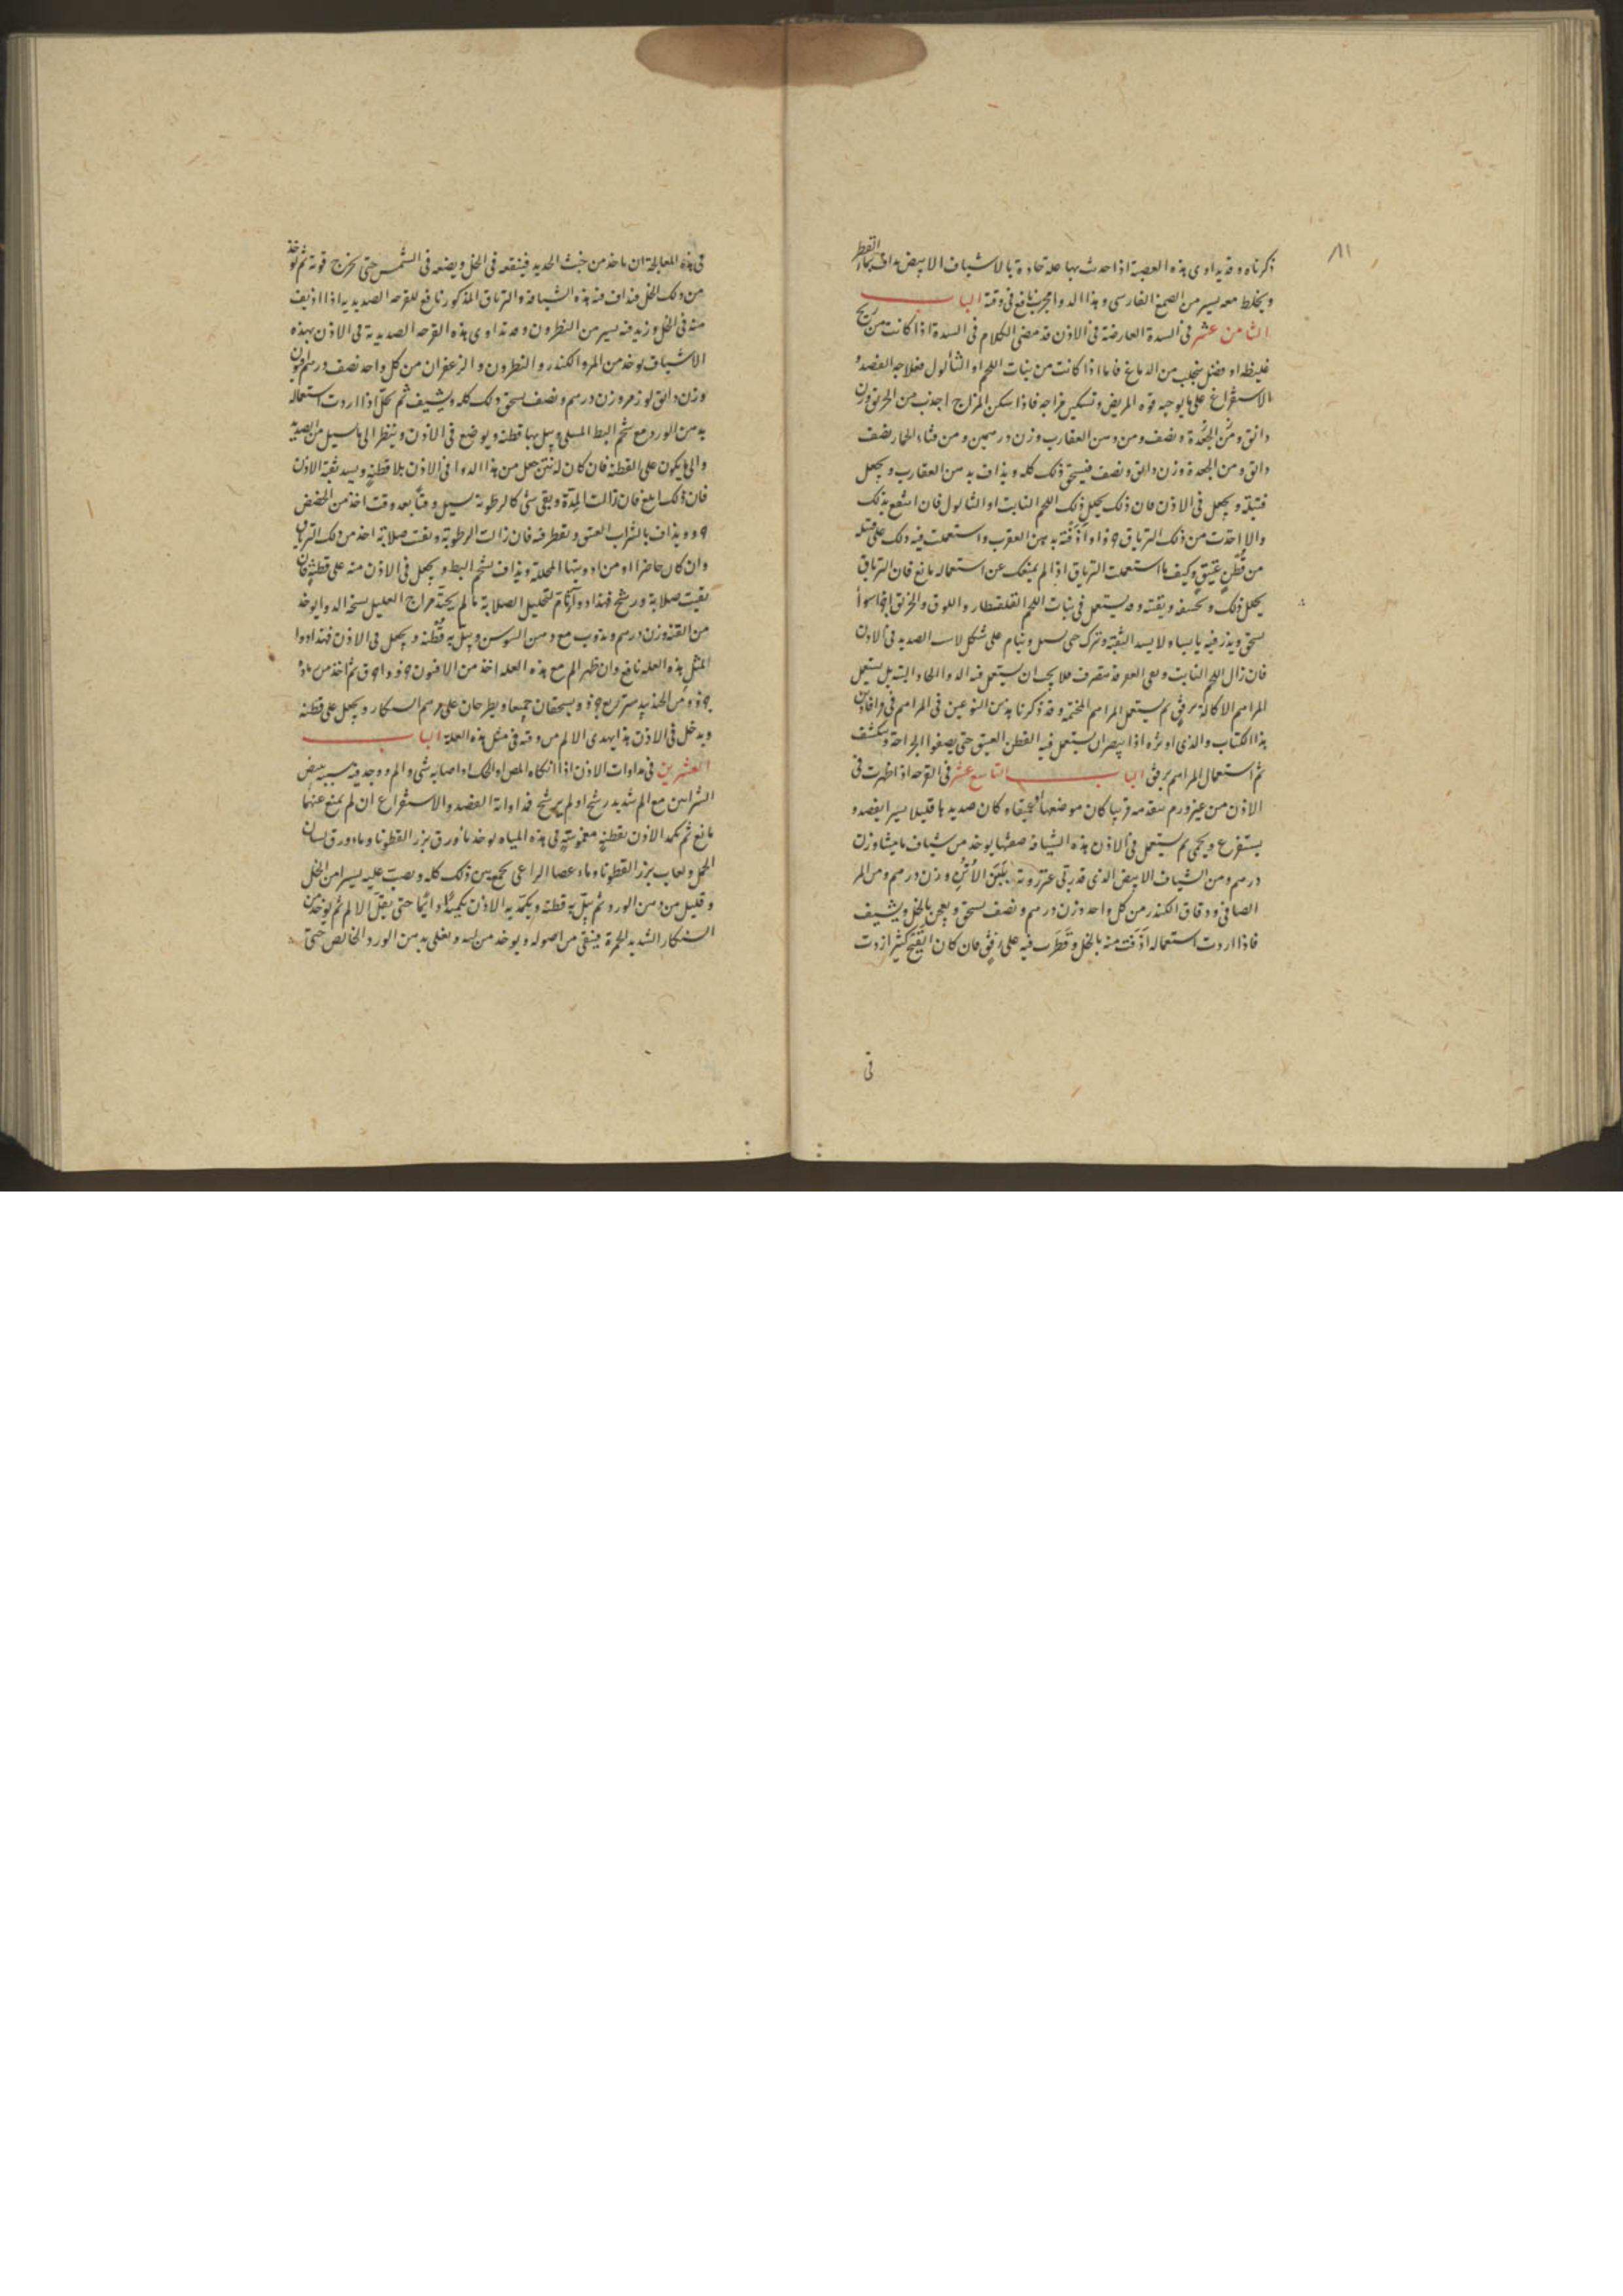 ٨١
ذكرناه وقد يداوى هذه العصبة اذا حدث بها علة حادة بالاشياف الابيض مداف بماء القطر
ويخلط معه يسير من الصمغ الفارسى وهذا الدوا مجرب نافع فى وقته الباب
الثامن عشر فى السدة العارضة فى الاذن قد مضى الكلام فى السدة اذا كانت من ريح
غليظه او فضل ينجلب من الدماغ فاما اذا كانت من نبات اللحم او الثالول فعلاجه الفصد و
الاستفراغ على ما يوجبه قوه المريض وتسكين مزاجه فاذا سكن المزاج اخذت من الخربق وزن
دانق ومن الجعدة ونصف ومن دهن العقارب وزن درهمين ومن قثاء الحمار نصف
دانق ومن الجعدة وزن دانق ونصف فيسحق ذلك كله ويذاف بدهن العقارب ويجعل
فتيلة ويجعل فى الاذن فان ذلك يحلل ذلك اللحم النابت او الثالول فان انتفع بذلك
والا اخذت من ذلك الترياق واذفته بدهن العقرب واستعملت فيه ذلك على فتيله
من قطن عتيق وكيف ما استعملت الترياق اذا لم يمنعك عن استعماله مانع فان الترياق
يحلل ذلك ويجففه ويفته وقد يستعمل فى نبات اللحم القلقطار و والخربق اجزا سوا
يسحق ويذر فيه لا يسد الثقبة وتترك حتى يسيل وينام على شكل الصديد فى الاذن
فان زال اللحم النابت وبقى العفو فلا يجب ان يستعمل فيه الدوا الحاد البته بل يستعمل
المراهم الاكالة برفق ثم يستعمل المراهم الملحمة وقد ذكرنا هذين النوعين فى المراهم فى
هذا الكتاب والذى اوثره اذا ان يستعمل فيه القطن العتيق حتى يصفوا الجراحة وينكشف
ثم استعمال المراهم برفق الباب التاسع عشر فى القرحه اذا ظهرت فى
الاذن من غير ورم متقدمه قريبا كان موضعها او عميقا وكان صديدها قليلا يسيرا يفصد و
يستفرغ ويحمى ثم يستعمل فى الاذن هذه الشيافة صفتها يوخذ من شياف ماميثا وزن
درهم ومن الشياف الابيض الذى قد ربى عنزروته بلبن الاتن وزن درهم ومن المر
الصافى ودقاق الكندر من كل واحد وزن درهم ونصف يسحق ويعجن بالخل ويشيف
فاذا اردت استعماله اذفت منه بالخل وقطرت فيه على رفق فان كان القيح كثيرا زدت
فى
فى هذه المعالجة ان ياخذ من خبث الحديد فينقعه فى الخل ويضعه فى الشمس حتى يخرج قوته ثم يوخذ
من ذلك الخل فيذاف فيه هذه الشيافة والترياق المذكور نافع للقرحه الصديديه اذا اذيف
منه فى الخل وزيد فيه يسير من النطرون وقد تداوى هذه القرحه الصديدية فى الاذن بهذه
الاشياف يوخذ من المر والكندر والنطرون والزعفران من كل واحد نصف درهم افيون
وزن دانق لوز مر وزن درهم ونصف يسحق ذلك كله ويشيف ثم يحل اذا اردت استعماله
بدهن الورد مع شحم البط المسلى ويبل بها قطنة ويوضع فى الاذن وينظر الى ما يسيل من الصديد
والى ما يكون على القطنة فان كان له نتن جعل من هذا الدوا فى الاذن بلا قطنة ويسد ثقبة الاذن
فان ذلك ابلغ فان زالت المدة وبقى شئ كالرطوبة يسيل وقتا بعد وقت اخذ من الحضض
ويذاف بالشراب العتيق ويقطر فيه فان زالت الرطوبة وبقيت صلابة اخذ من ذلك الترياق
وان كان حاضرا او من ادويتها المحللة ويذاف بشحم البط ويجعل فى الاذن منه على قطنة فان
بقيت صلابة ورشح فهذا دوا تام لتحليل الصلابة ما لم مزاج العليل يسخن الدوا يوخذ
من القنه وزن درهم ويذوب مع دهن السوسن ويبل به قطنة ويجعل فى الاذن فهذا دوا
لمثل هذه العله نافع وان ظهر الم مع هذه العله اخذ من الافيون ثم اخذ من
ومن الجندبيدستر ويسحقان جميعا ويطرحان على مرهم السنكار ويجعل على قطنة
ويدخل فى الاذن هذا يهدى الالم من وقته فى مثل هذه العلة الباب
العشرين فى مداوات الاذن اذا انكاه المص او الحك او اصابه شئ والم ووجد فيه بسببه نبض
الشرايين مع الم شديد رشح او لم يرشح فمداواته الفصد والاستفراغ ان لم يمنع عنهما
مانع ثم تكمد الاذن بقطنة مغموسة فى هذه المياه يوخذ ماء ورق بزر القطونا وماء ورق لسان
الحمل ولعاب بزر القطونا وماء عصا الراعى يجمع بين ذلك كله ويصب عليه يسيرا من الخل
وقليل من دهن الورد ثم يبل به قطنة ويكمد به الاذن تكميدا دائما حتى يقل الالم ثم يوخذ من
السنكار الشديد الحمرة فينقى من اصوله ويوخذ من ويغلى بدهن الورد الخالص حتى